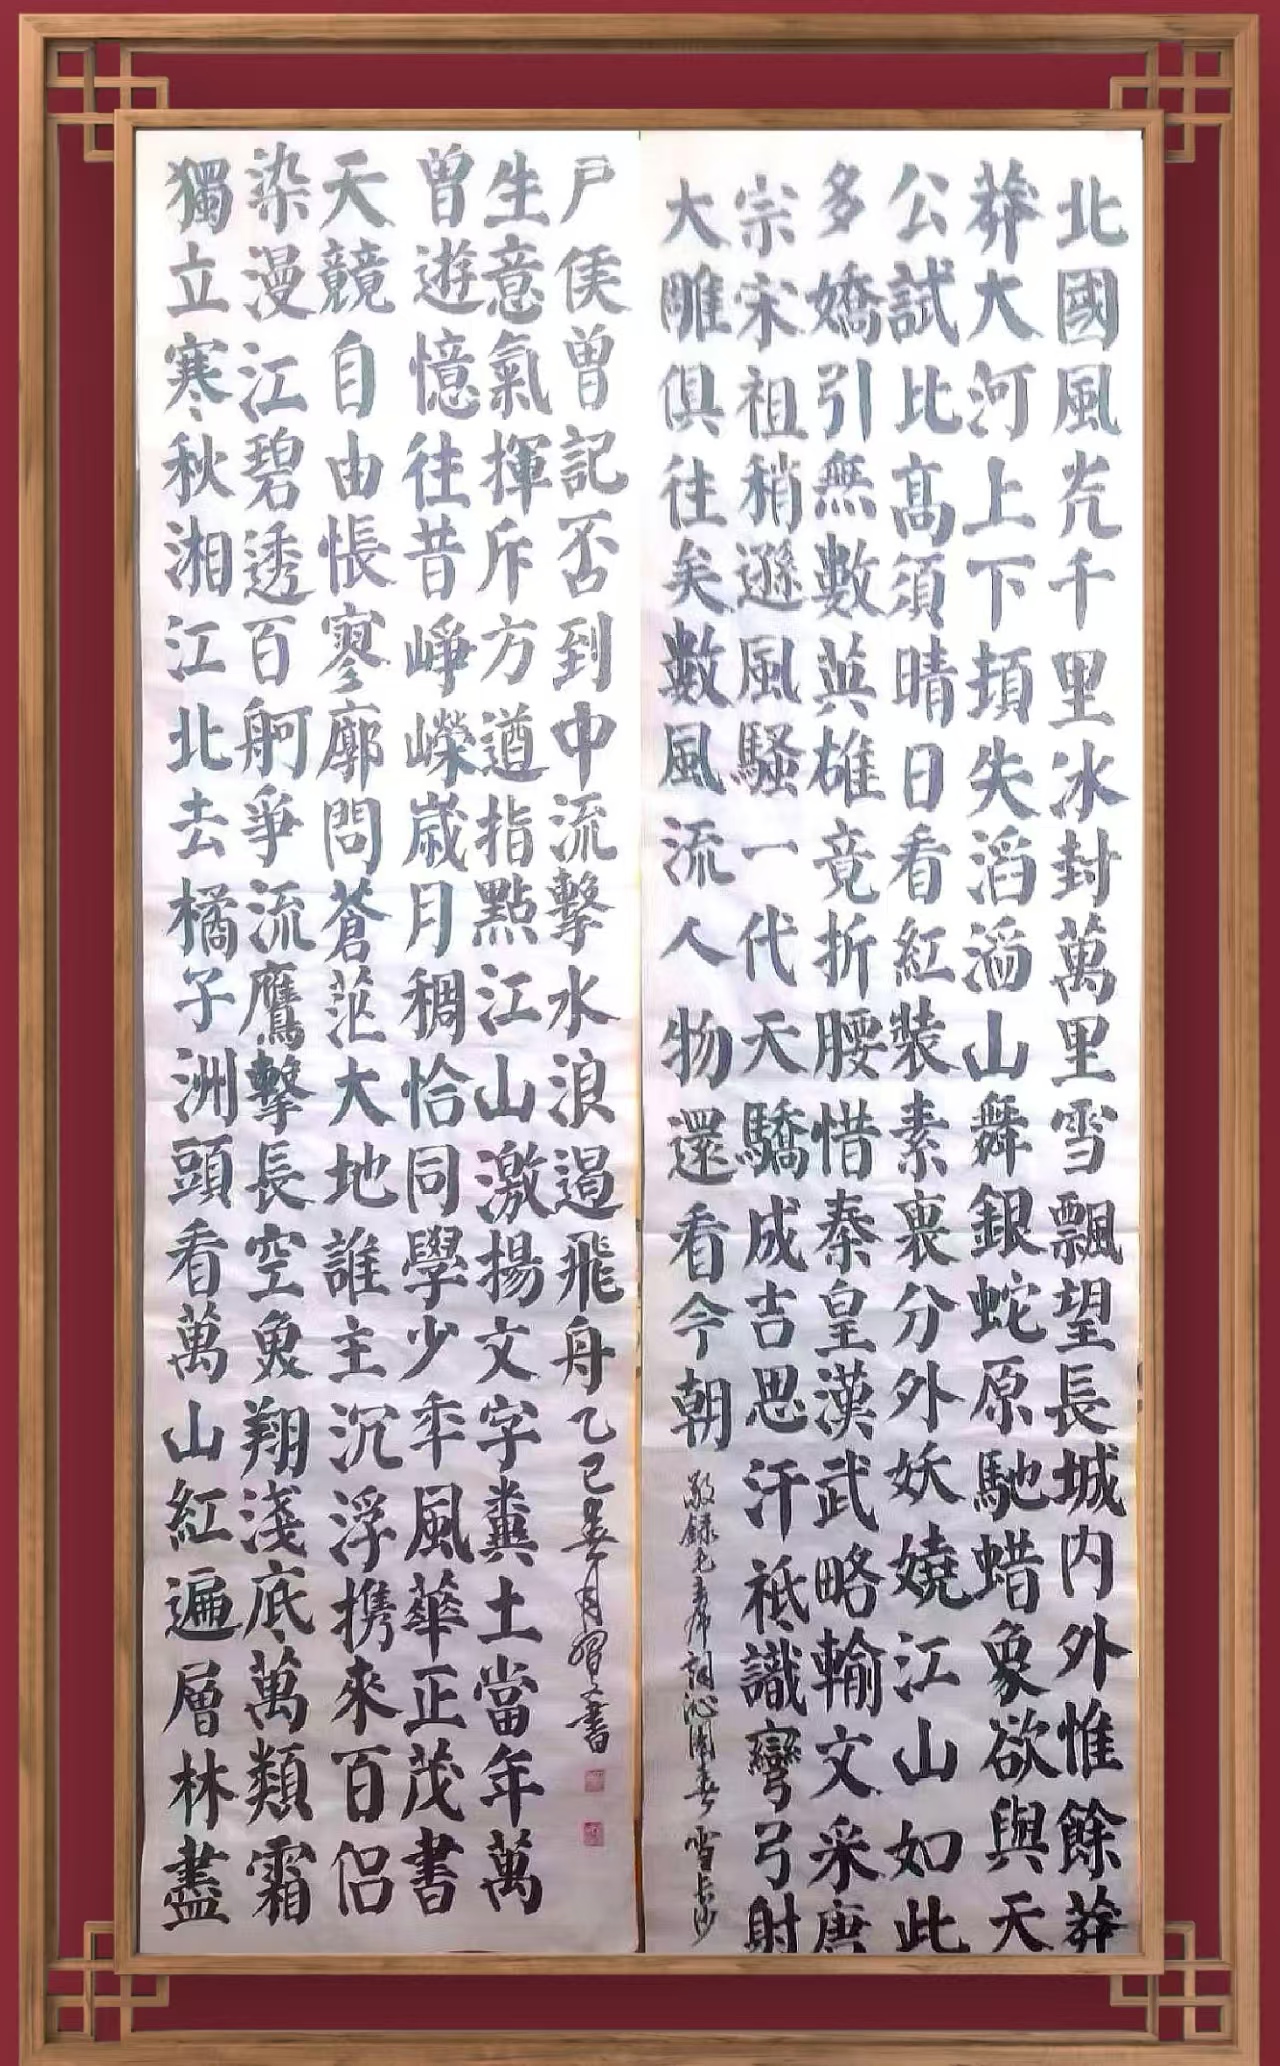 北國風光千里冰封萬里雪飄望長城内外惟餘莽
莽大河上下頓失滔滔山舞銀蛇原馳蜡象欲與天
公試比高須晴日看紅裝素裹分外妖嬈江山如此
多嬌引無數英雄竟折腰惜秦皇漢武略輸文采唐
宗宋祖稍遜風騷一代天驕成吉思汗祗識彎弓射
大雕俱往矣數風流人物還看今朝
敬録毛主席詞沁園春雪長沙
獨立寒秋湘江北去橘子洲頭看萬山紅遍層林盡
染漫江碧透百舸爭流鷹擊長空魚翔淺底萬類霜
天競自由悵寥廓問蒼茫大地誰主沉浮携來百侶
曾遊憶往昔崢嶸歲月稠恰同學少年風華正茂書
生意氣揮斥方遒指點江山激揚文字糞土當年萬
戶侯曾記否到中流擊水浪遏飛舟乙巳春月習書